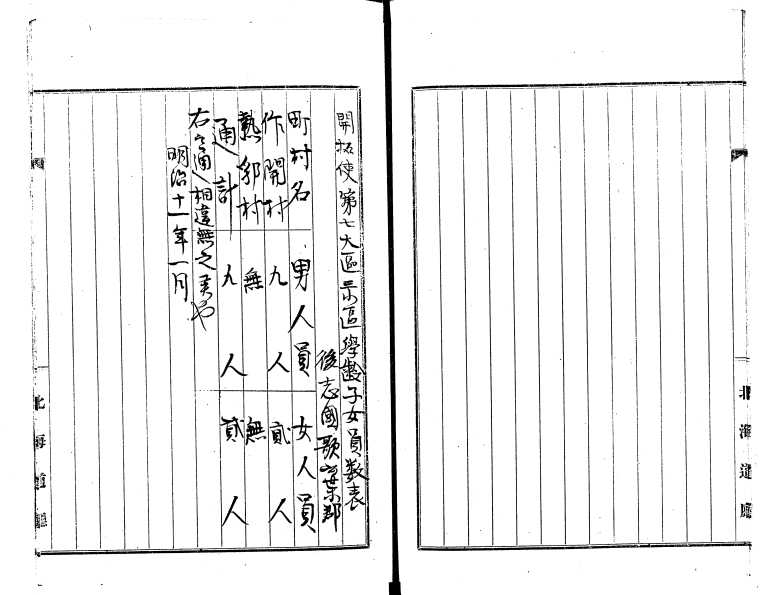 北海道廳
開拓使第七大區小區學齡子女員数表
後志國歌棄郡
町村名 男人員 女人員
作開村 九人 貳人
熱郛村 無 無
通計 九人 貳人
右之通相違無之者也
明治十一年一月
北海道廳